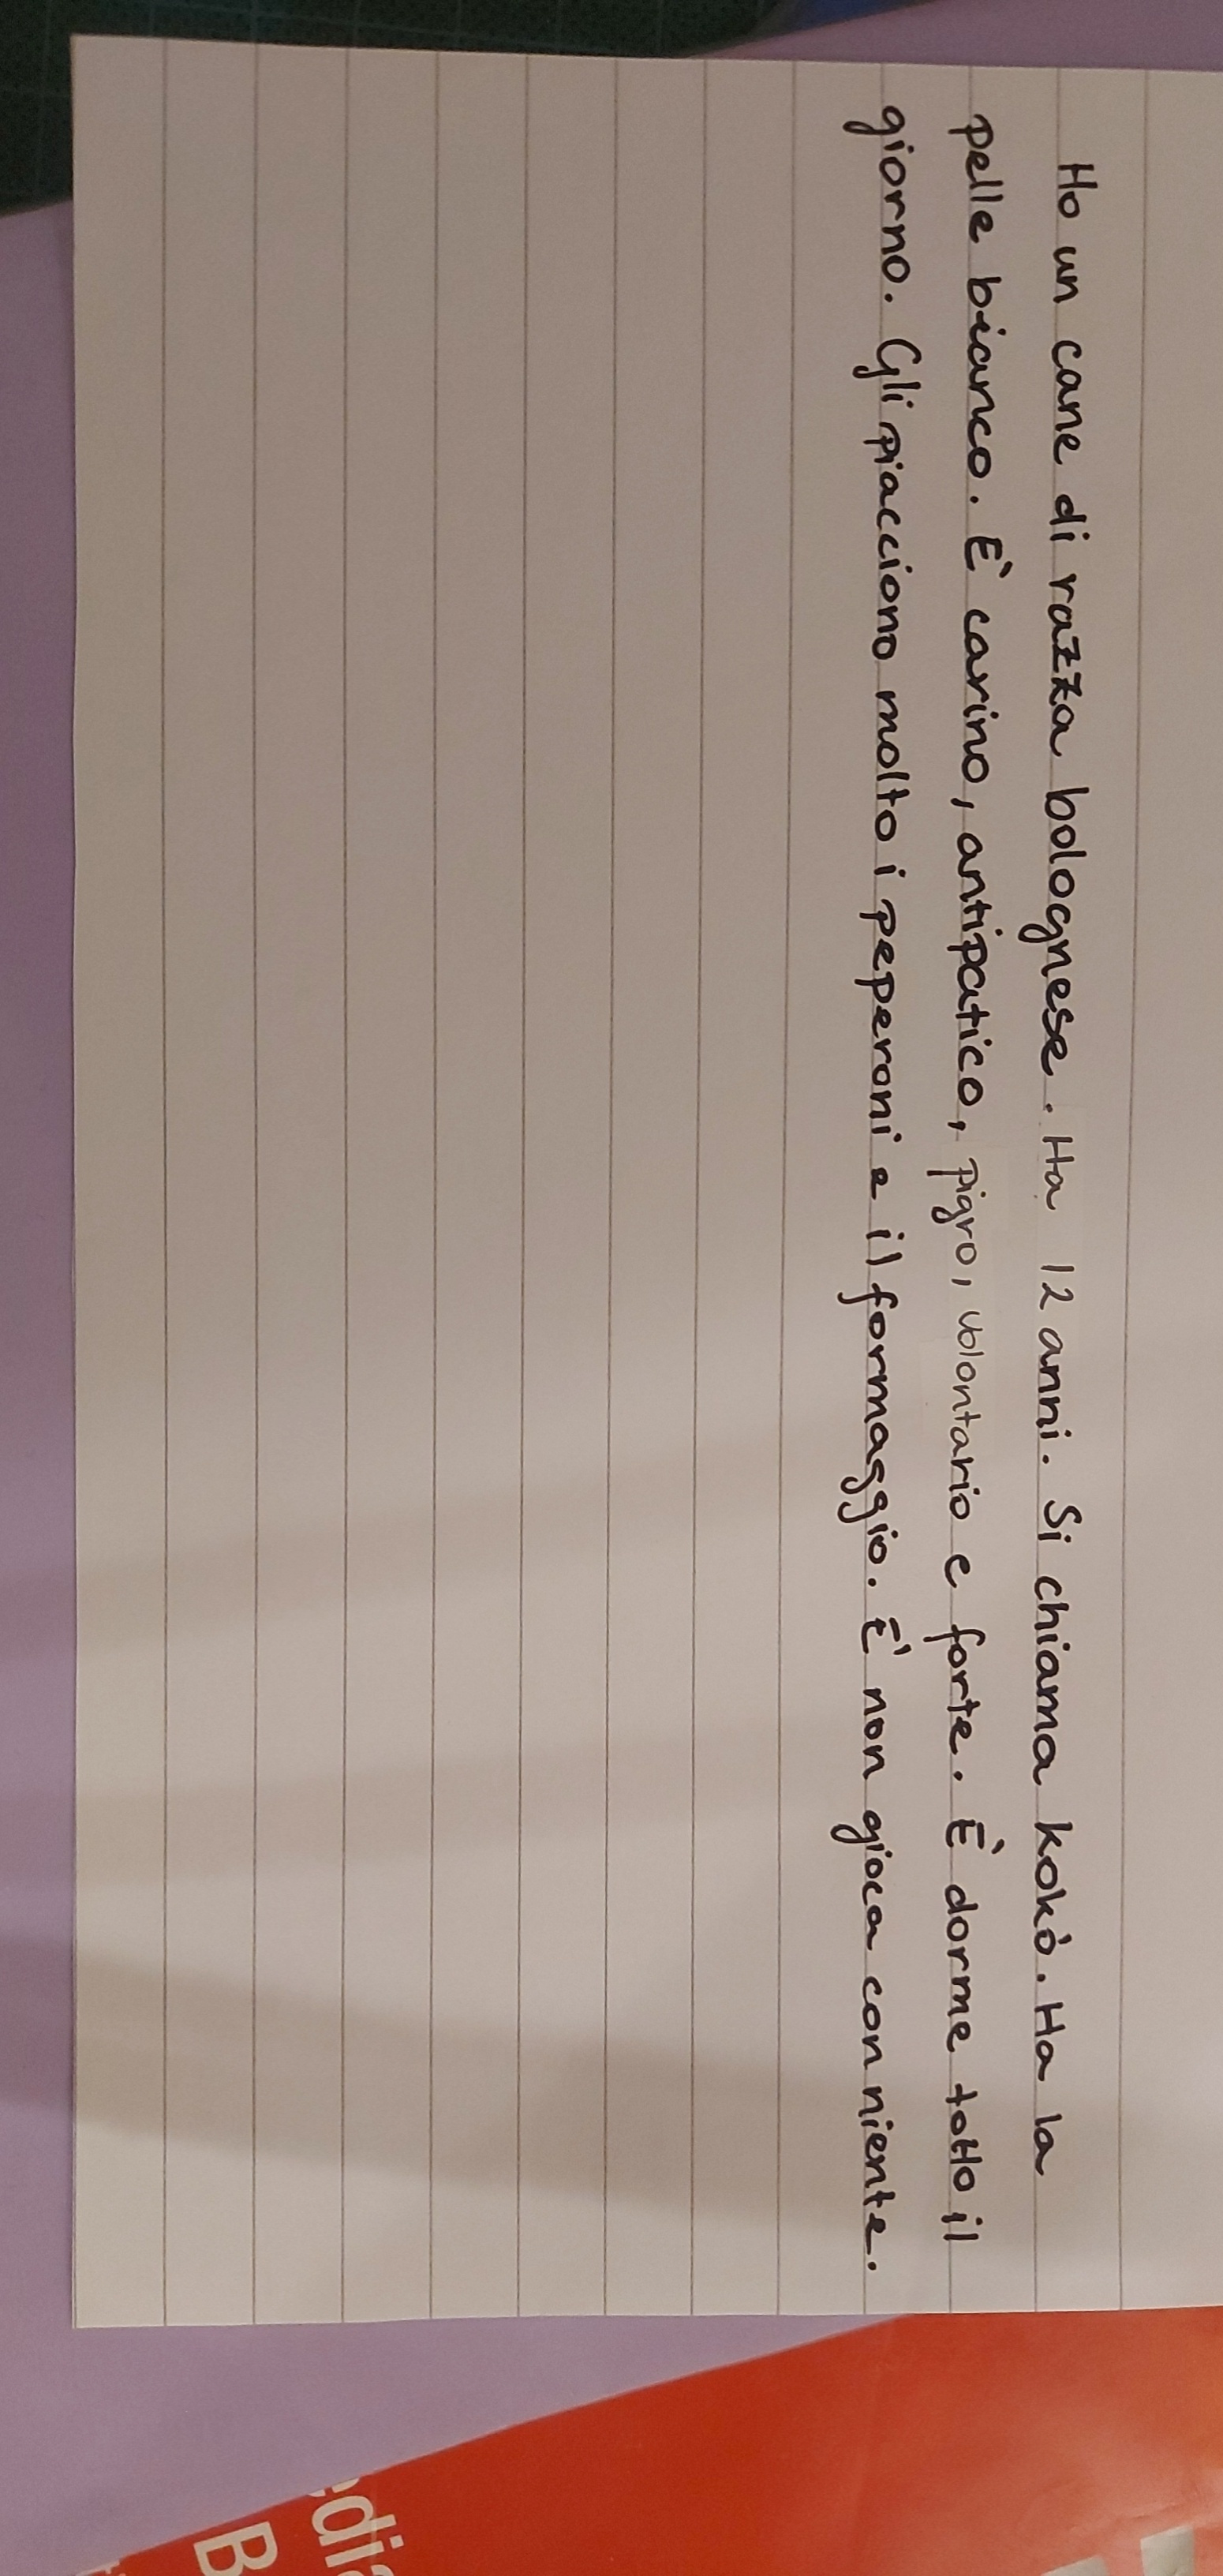 Ho un cane di razza bolognese. Ha 12 anni. Si chiama kokò. Ha la
pelle bianco. È carino, antipatico, pigro, volontario e forte. È dorme totto il
giorno. Gli piacciono molto i peperoni e il formaggio. È non gioca con niente.
B